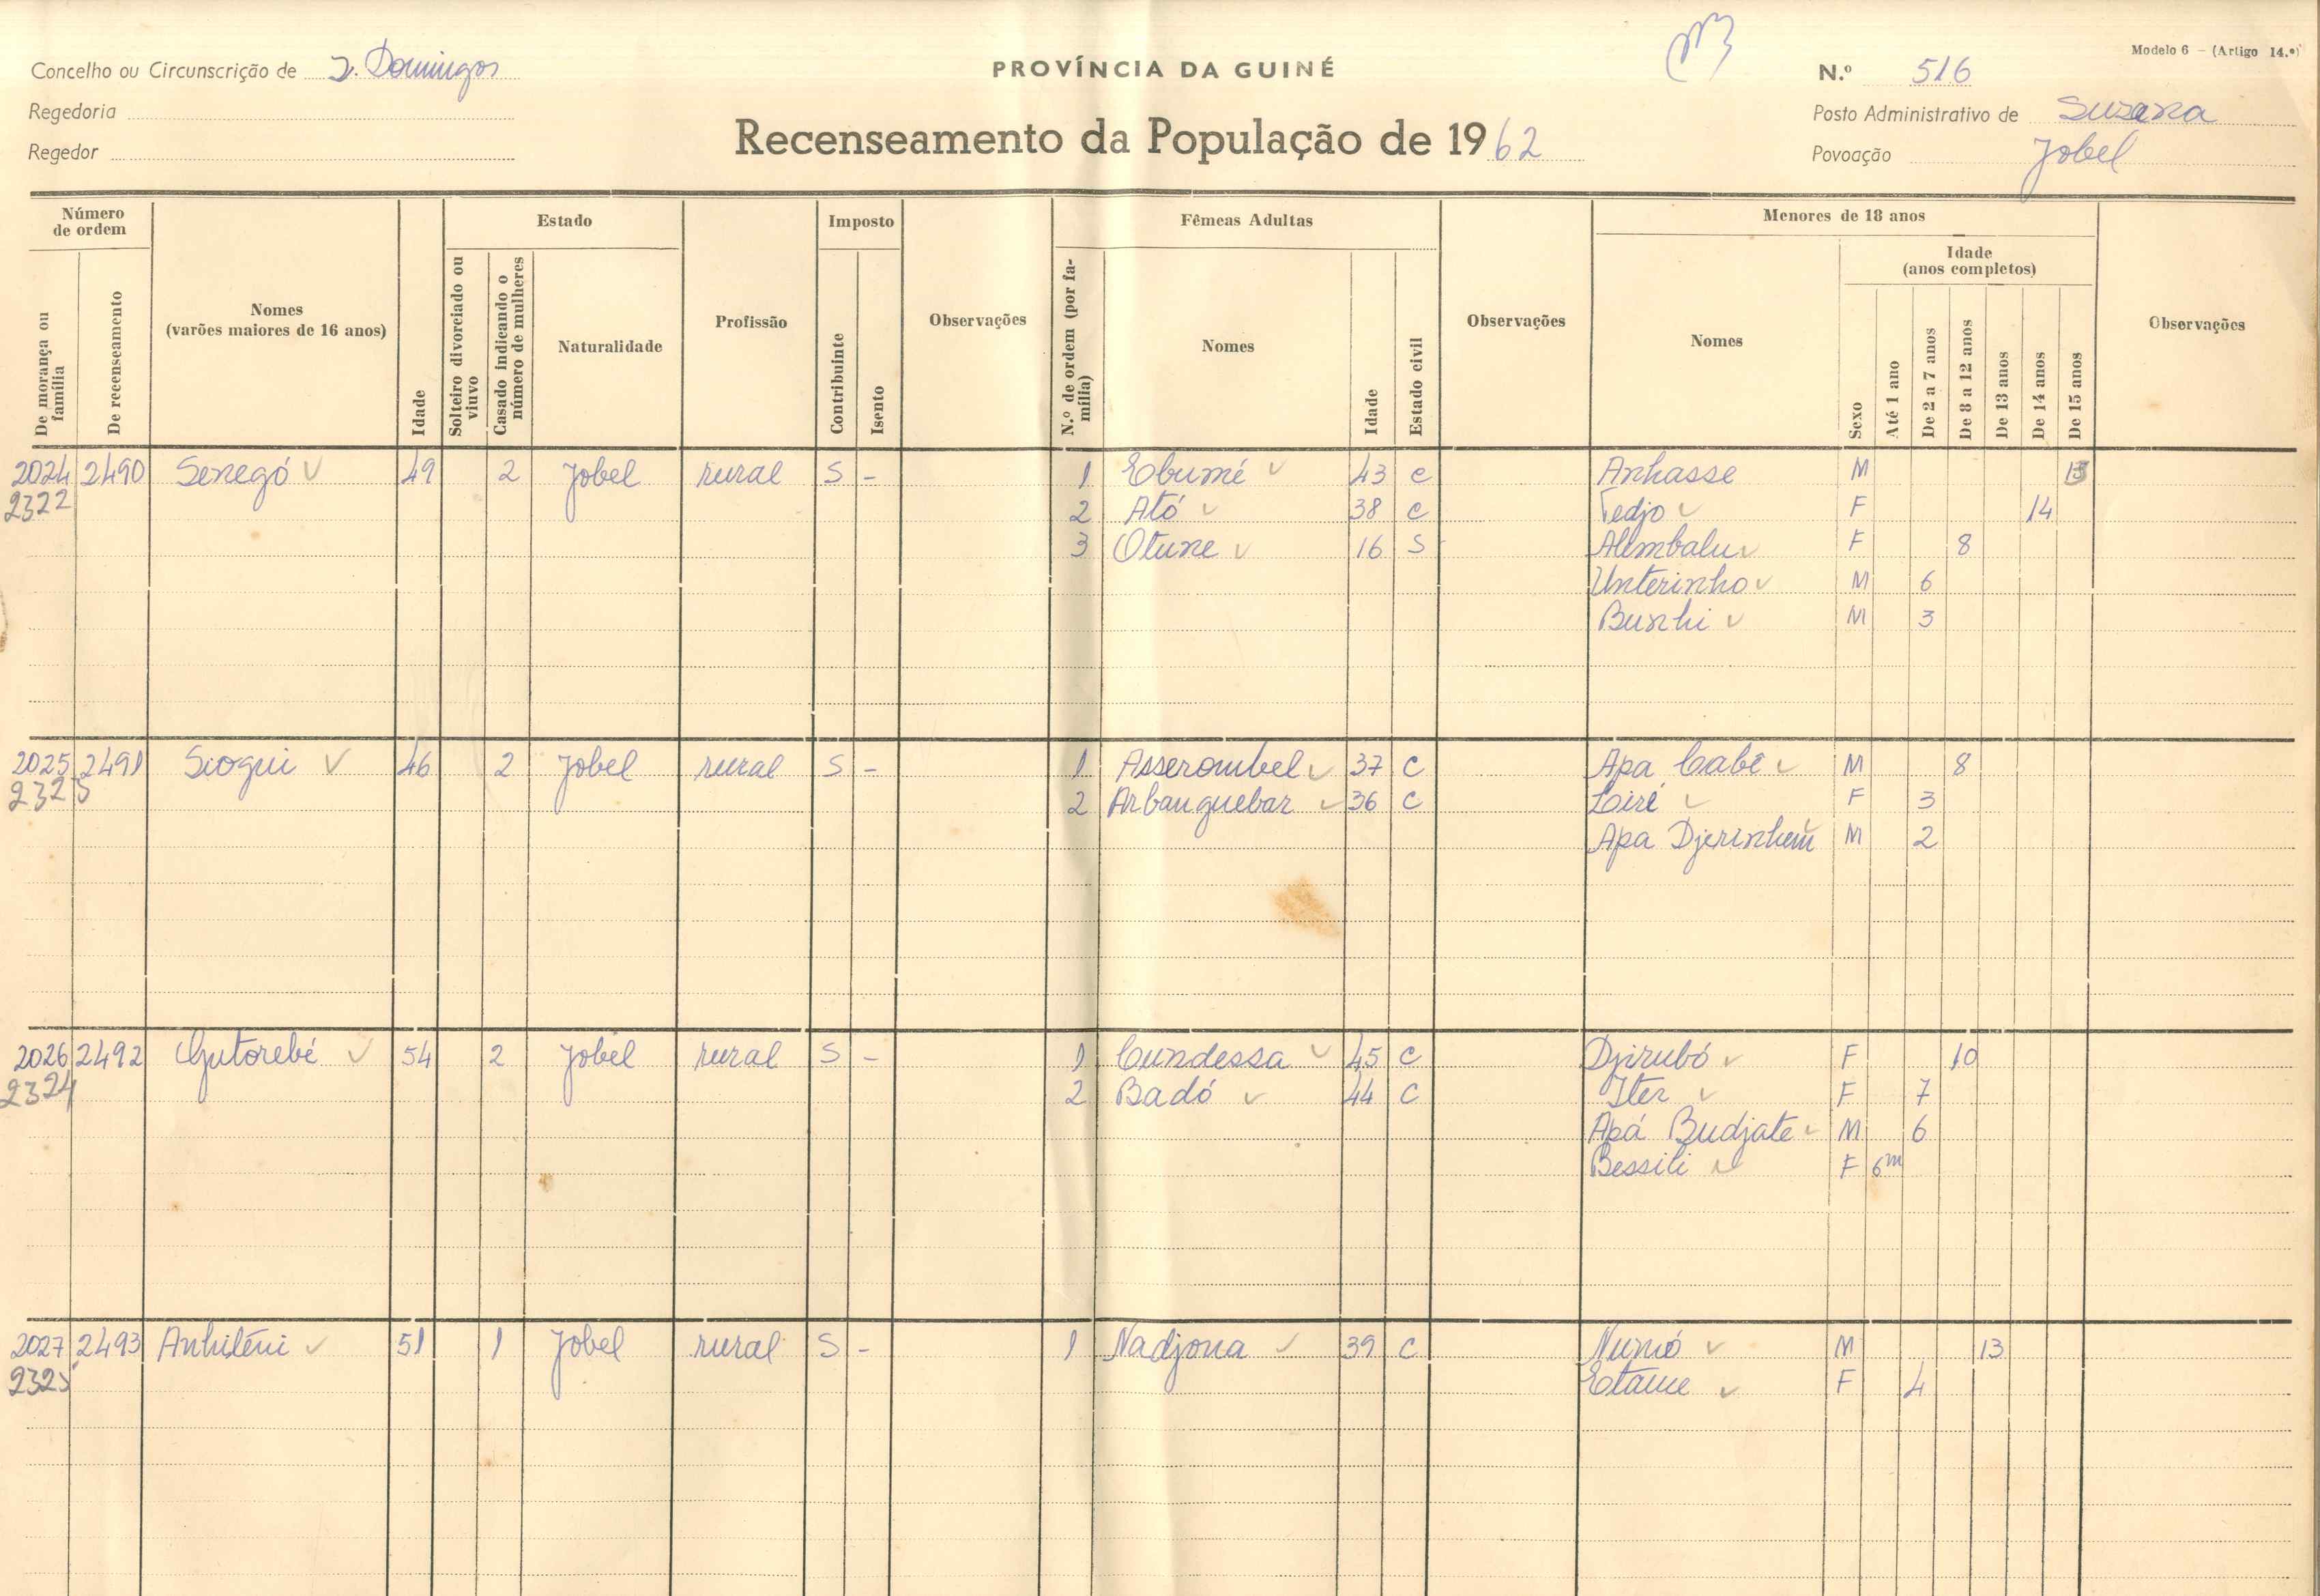 Modelo 6 - (Artigo 14.º)
Concelho ou Circunscrição de S. Domingos
PROVÍNCIA DA GUINÉ
N.º 516
Regedoria
Posto Administrativo de Suzana
Regedor
Recenseamento da População de 1962
Povoação Jobel
Número de ordem
De morança ou família
De recenseamento
Nomes
(varões maiores de 16 anos)
Idade
Estado
Solteiro divorciado ou viuvo
Casado indicando o número de mulheres
Naturalidade
Profissão
Imposto
Contribuinte
Isento
Observações
Fêmeas Adultas
N.º de ordem (por família)
Nomes
Idade
Estado civil
Observações
Menores de 18 anos
Nomes
Sexo
Idade
(anos completos)
Até 1 ano
De 2 a 7 anos
De 8 a 12 anos
De 13 anos
De 14 anos
De 15 anos
Observações
2024 2490 Senegó 49 2 Jobel rural S - 1 Ebumé 43 c Anhasse M 15
2322 2 Ató 38 c Tedjo F 14
3 Otune 16 S Alembalu F 8
Unterinho M 6
Bunhi M 3
2025 2491 Siogui 46 2 Jobel rural S - 1 Asserombel 37 c Apa Cabê M 8
2323 2 Arbanguebar 36 c Loiré F 3
Apa Djerinhem M 2
2026 2492 54 2 Jobel rural S - 1 Cundessa 45 c Djirubó F 10
2324 2 Badó 44 c Iter F 7
Apá Budjate M 6
Bessili F 6m
2027 2493 Anhiléni 51 1 Jobel rural S - 1 Nadjona 39 c Numó M 13
2325 Etame F 4